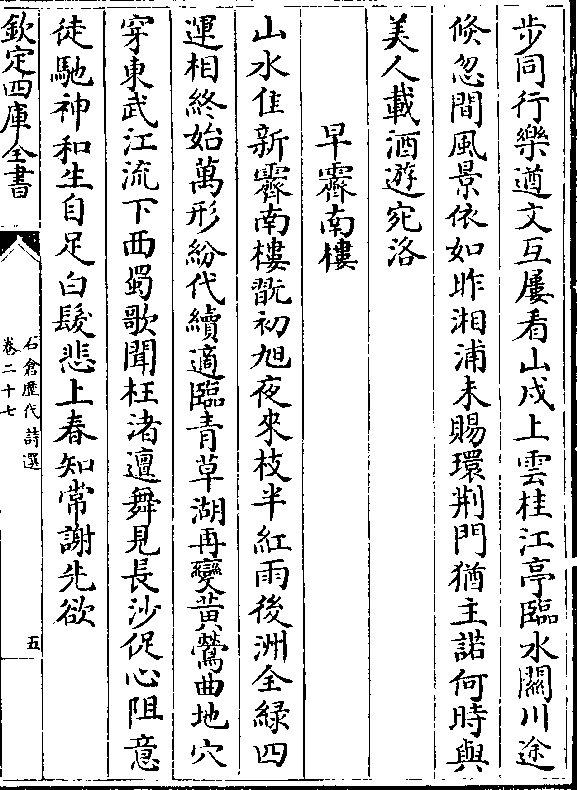 步同行樂遒文互屢看山戍上雲桂江亭臨水關川途
倐忽間風景依如昨湘浦未賜環荆門猶主諾何時與
美人載酒遊宛洛
早霽南樓
山水隹新霽南樓翫初旭夜來枝半紅雨後洲全緑四
運相終始萬形紛代續適臨青草湖再變黃鶯曲地穴
穿東武江流下西蜀歌聞枉渚邅舞見長沙促心阻意
徒馳神和生自足白髮悲上春知常謝先欲
欽定四庫全書
石倉歷代詩選
卷二十七
五